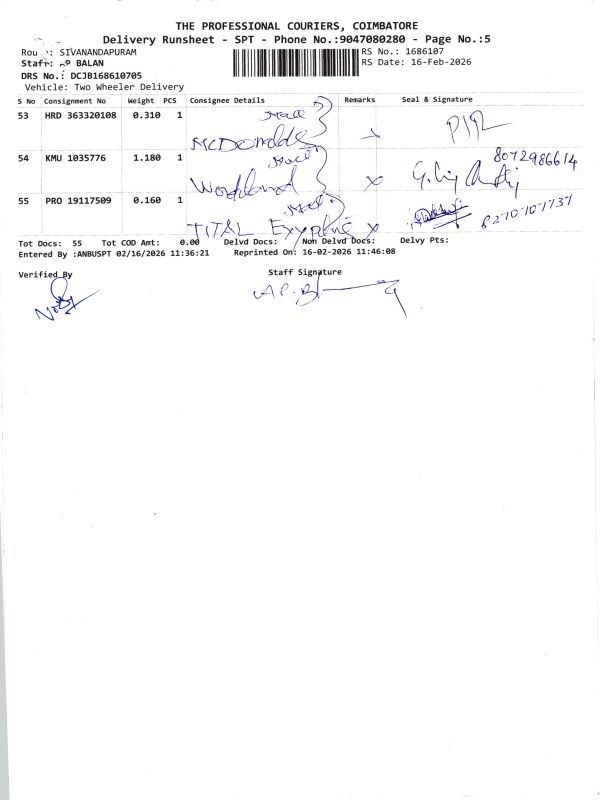 THE PROFESSIONAL COURIERS, COIMBATORE
Delivery Runsheet - SPT - Phone No.:9047080280 - Page No.:5
SIVANANDAPURAM
RS No.: 1686107
Staff: AP BALAN
RS Date: 16-Feb-2026
DRS No.: DCJB168610705
Vehicle: Two Wheeler Delivery
S No Consignment No Weight PCS Consignee Details Remarks Seal & Signature
53 HRD 363320108 0.310 1
McDonalds
54 KMU 1035776 1.180 1
8072986614
55 PRO 19117509 0.160 1
Tot Docs: 55 Tot COD Amt: 0.00 Delvd Docs: Non Delvd Docs: Delvy Pts:
Entered By :ANBUSPT 02/16/2026 11:36:21 Reprinted On: 16-02-2026 11:46:08
Verified By Staff Signature